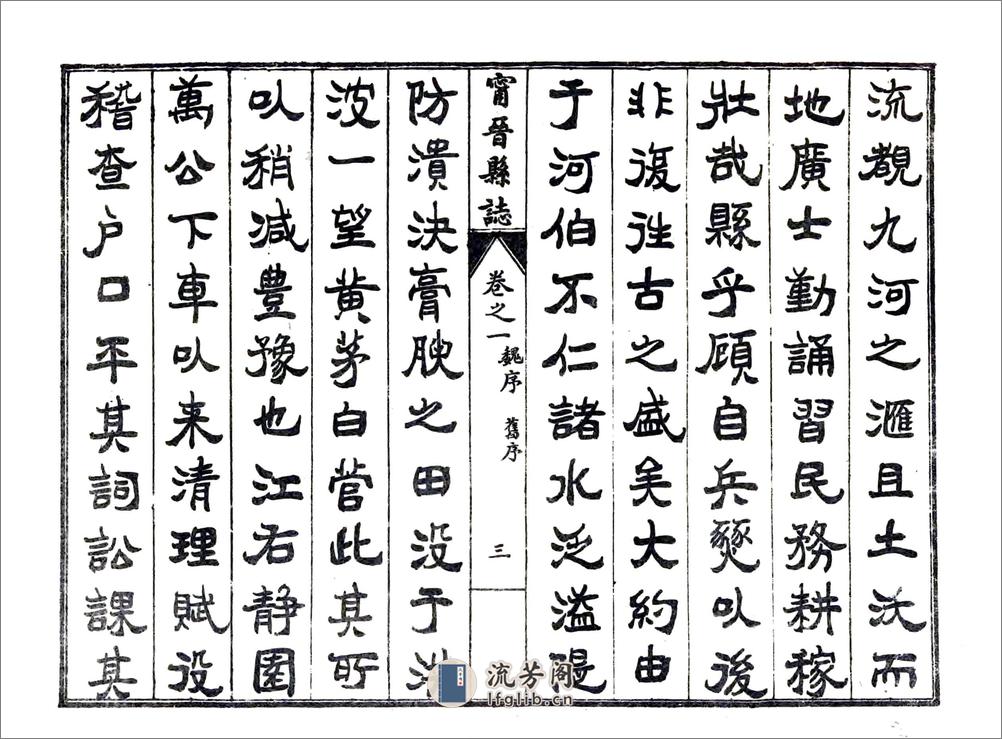 流覩九河之滙且土沃而
地廣士勤誦習民務耕稼
壯哉縣乎顧自兵燹以後
非復往古之盛矣大約由
于河伯不仁諸水泛溢隄
甯晉縣誌
卷之一
魏序 舊序
三
防潰決膏腴之田没于洪
波一望黄茅白菅此其所
以稍減豐豫也江右静園
萬公下車以来清理賦役
稽查户口平其詞訟課其
流芳阁
lfglib.cn